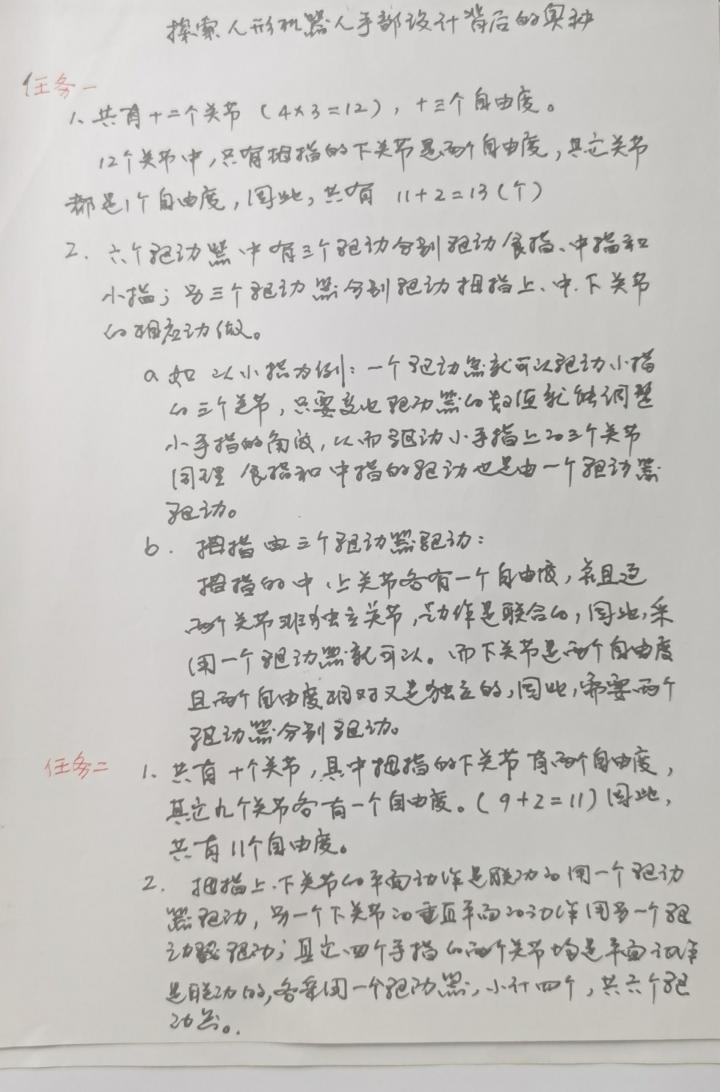 探索人形机器人手部设计背后的奥秘
任务一
1、共有十二个关节（4×3=12），十三个自由度。
12个关节中，只有拇指的下关节是两个自由度，其它关节
都是1个自由度，因此，共有 11+2=13（个）
2、六个驱动器中有三个驱动分别驱动食指、中指和
小指；另三个驱动器分别驱动拇指上、中、下关节
的相应动做。
a 如以小指为例：一个驱动器就可以驱动小指
的三个关节，只要变化驱动器的数值就能调整
小手指的角度，从而驱动小手指上的三个关节
同理 食指和中指的驱动也是由一个驱动器
驱动。
b. 拇指由三个驱动器驱动：
拇指的中、上关节各有一个自由度，并且这
两个关节非独立关节，动作是联合的，因此，采
用一个驱动器就可以。而下关节是两个自由度
且两个自由度相对又是独立的，因此，需要两个
驱动器分别驱动。
任务二 1、共有十个关节，其中拇指的下关节有两个自由度，
其它九个关节各有一个自由度。（9+2=11）因此，
共有11个自由度。
2. 拇指上、下关节的平面动作是联动的用一个驱动
器驱动，另一个下关节的垂直平面的动作用另一个驱
动器驱动；其它四个手指的两个关节均是平面动作
是联动的，各采用一个驱动器，小计四个，共六个驱
动器。